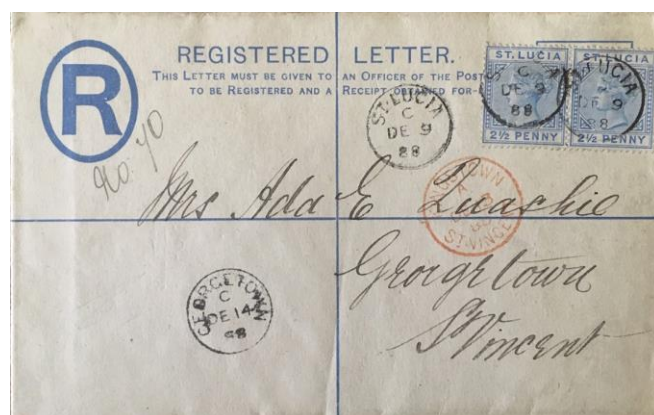 REGISTERED LETTER.
THIS LETTER MUST BE GIVEN TO AN OFFICER OF THE POST
TO BE REGISTERED AND A RECEIPT OBTAINED FOR
R
No. 40
ST. LUCIA
2½ PENNY
ST. LUCIA
2½ PENNY
ST. LUCIA
C
DE 9
88
ST. LUCIA
C
DE 9
88
ST. LUCIA
C
DE 9
88
Mrs Ada E
KINGSTOWN
A
ST. VINCENT
Georgetown
St Vincent
GEORGETOWN
C
DE 14
88